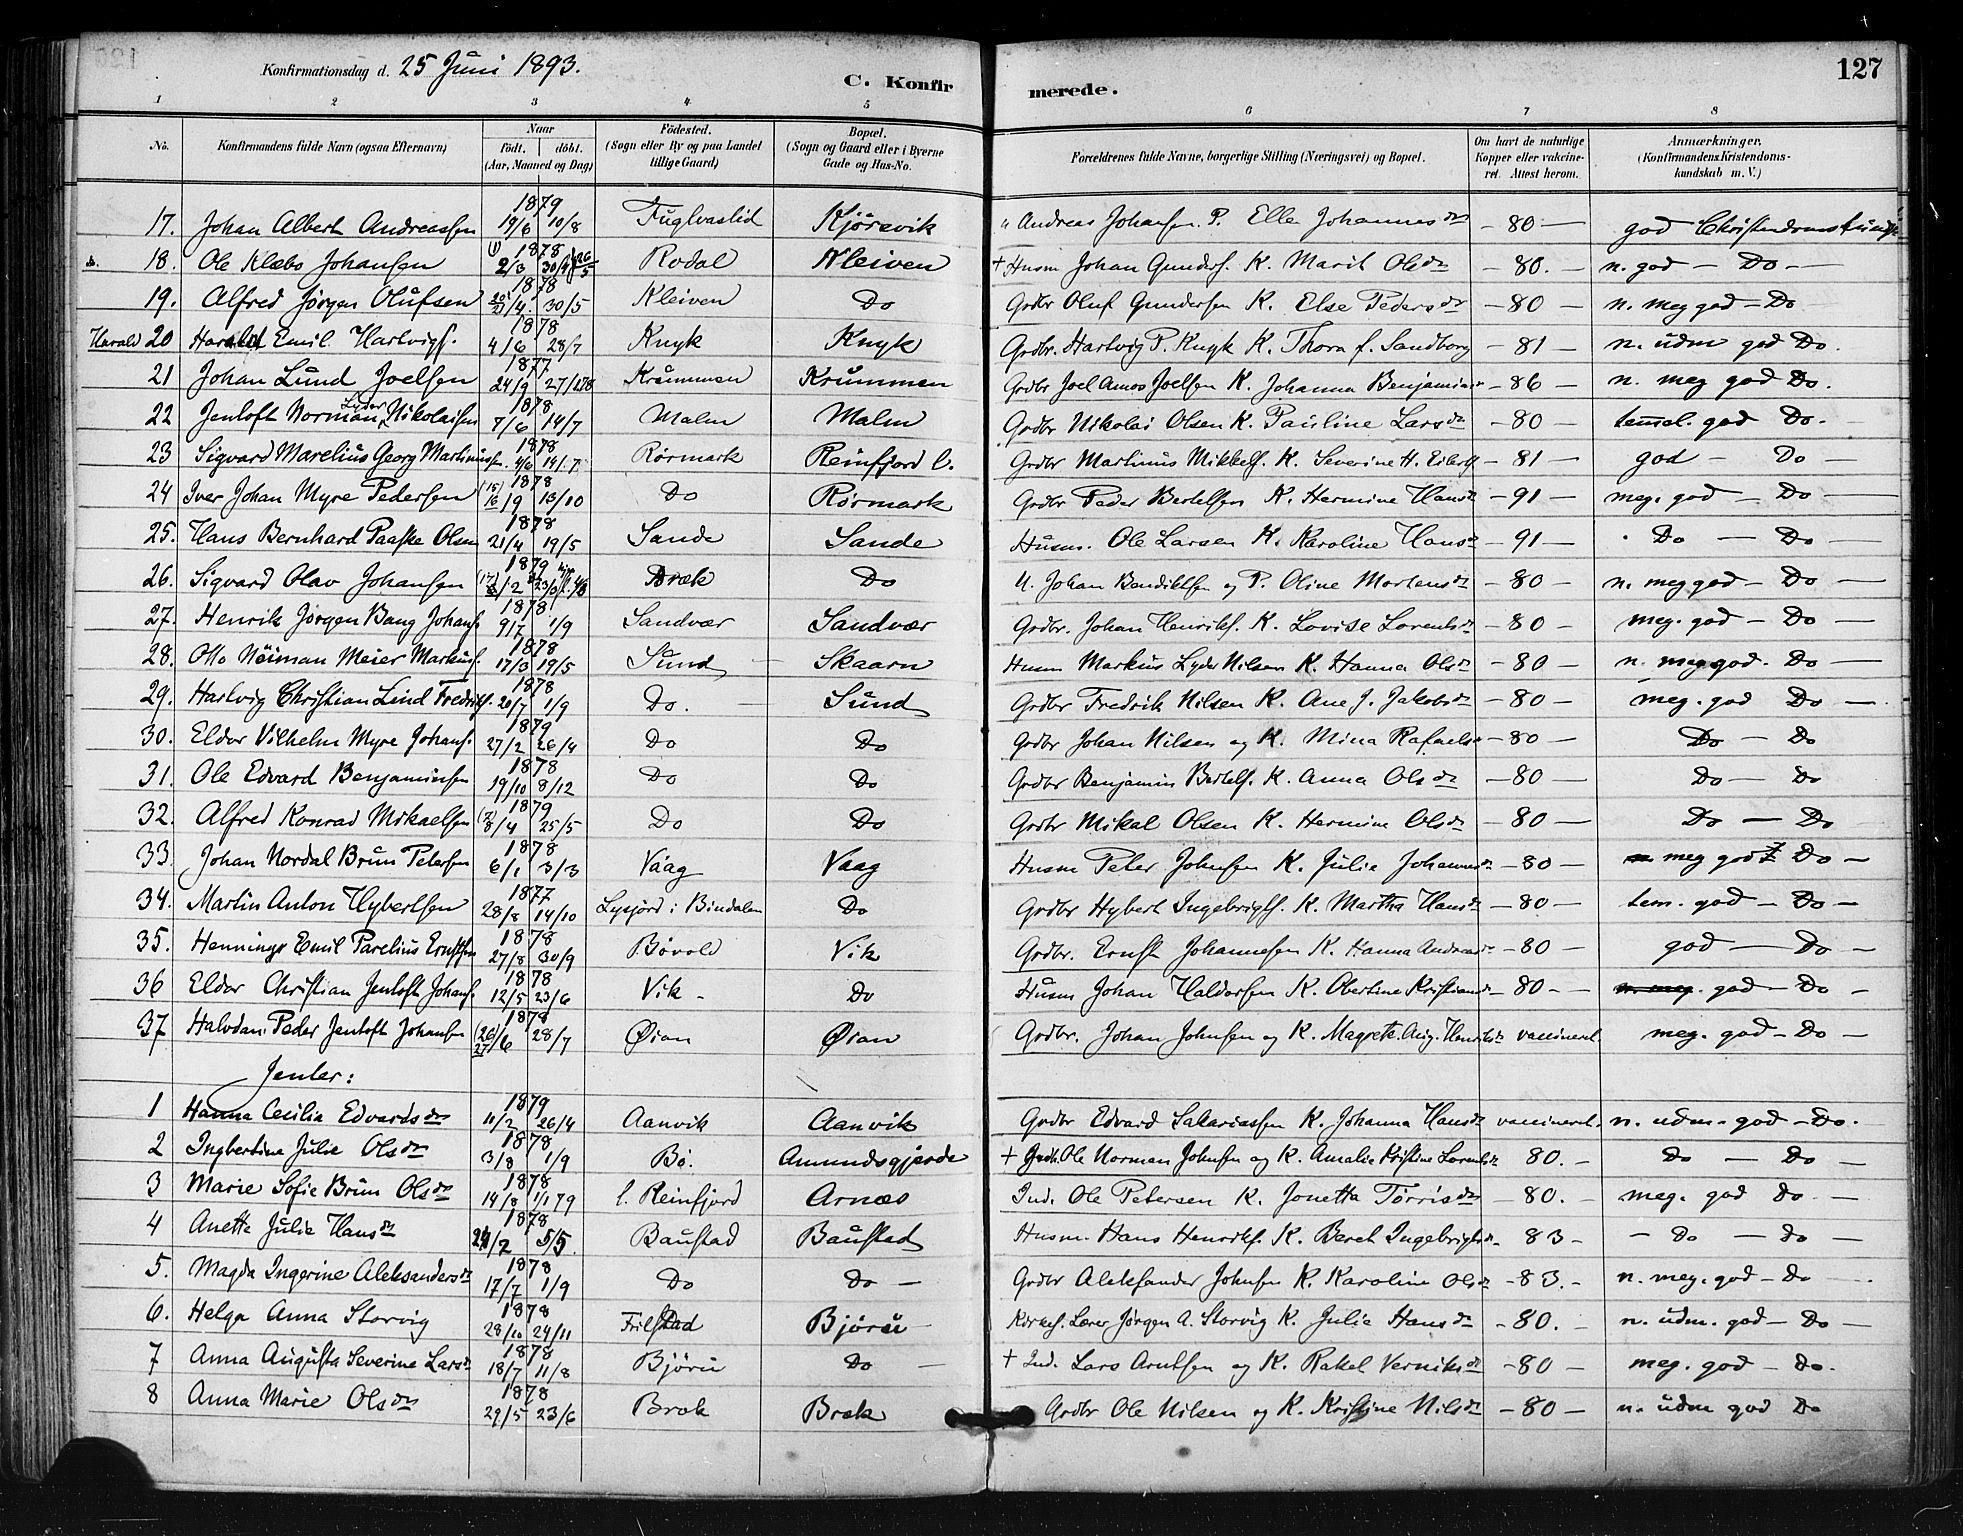 Konfirmationsdag d. 25 Juni 1893.
C. Konfir merede. 127
1 2 3 4 5 6 7 8
No. Konfirmandens fulde Navn (ogsaa Efternavn) Naar födt. döbt. (Aar, Maaned og Dag) Födested. (Sogn eller By og paa Landet tillige Gaard) Bopæl. (Sogn og Gaard eller i Byerne Gade og Hus-No. Forældrenes fulde Navne, borgerlige Stilling (Næringsvei) og Bopæl. Om havt de naturlige Kopper eller vakcineret. Attest herom. Anmærkninger. (Konfirmandens Kristendomskundskab m. V.)
17. Johan Albert Andreassen 1879 19/6 10/8 Fuglvaslid Kjörsvik " Andreas Johansen. P. Elle Johannesdr - 80 - god Christendomskundsk
18. Ole Klæbo Johansen 1878 2/3 30/4 Rodal Kleiven + Husm Johan Gunders. K. Marit Olsdr - 80. - n. god - Do -
19. Alfred Jörgen Olufsen 1878 20/21/4. 30/5 Kleiven Do Grdbr Oluf Gundersen K. Else Pedersdr - 80 n. meg god - Do
Harald 20 Harald Emil Hartvigs. 1878 4/6 28/7 Knyk Knyk Grdbr. Hartvig P. Knyk K. Thora f. Sandborg - 81 n. udm god Do.
21 Johan Lund Joelsen 1877 24/9 27/1 78 Krummen Krummen Grdbr Joel Amos Joelsen K. Johanna Benjamins - 86 - n. meg god Do.
22 Jentoft Norman Lyder Nikolaisen 1878 7/6 14/7 Malm Malm Grdbr Nikolai Olsen K. Pauline Larsdr - 80 temmel. god Do. -
23 Sigvard Marelius Georg Martinusn. 1878 4/6 14/7 Rörmark Reinfjord l. Grdbr Martinus Mikkels. K. Severine H. Eilerts - 81 god - Do -
24 Iver Johan Myre Pedersen 1878 (15)/16/9 13/10 Do Rörmark Grdbr Peder Bertelsen K. Hermine Hansdr - 91 - meg. god - Do -
25. Hans Bernhard Paaske Olsen 1878 21/4 19/5 Sande Sande Husm. Ole Larsen K. Karoline Hansdr - 91 - Do - Do -
26. Sigvard Olav Johansen 1879 (17)/2 23/3 Bræk Do U. Johan Bendiktsen og P. Oline Mortensdr - 80 - n. meg god - Do -
27. Henrik Jörgen Bang Johans. 1878 9/7 1/9 Sandvær Sandvær Grdbr. Johan Henriks. K. Lovise Lorentsdr - 80 - meg. god - Do -
28. Otto Neiman Meier Markus. 1878 17/3 19/5 Sund - Skaarn Husm Markus Lyder Nilsen K. Hanna Olsdr - 80 - n. meg god. Do -
29. Hartvig Christian Lind Fredriks. 1878 20/7 1/9 Do. - Sund Grdbr Fredrik Nilsen K. Ane J. Jakobsdr - 80 - meg. god Do -
30. Eldor Vilhelm Myre Johans. 1879 27/2 26/4 Do Do Grdbr Johan Nilsen og K. Mina Rafaels - 80 - Do - Do
31. Ole Edvard Benjaminsen 1878 19/10 8/12 Do Do Grdbr Benjamin Bertels. K. Anna Olsdr - 80 - Do - Do
32. Alfred Konrad Mikaelsen 1879 (7)/8/4 25/5 Do Do Grdbr Mikal Olsen K. Hermine Olsdr - 80 - Do - Do
33. Johan Nordal Brun Petersen 1878 6/1 3/3 Vaag Vaag Husm Peter Johnsen K. Julie Johannesdr - 80 - meg god Do -
34. Martin Anton Hybertsen 1877 28/8 14/10 Lysfjord i Bindalen Do Grdbr Hybert Ingebrigts. K. Martha Hansdr - 80 - tem. god - Do -
35. Hennings Emil Parelius Ernstsen 1878 27/8 30/9 Bövold Vik Grdbr. Ernst Johannesen K. Hanna Andreasdr - 80 - god - Do -
36 Eldor Christian Jentoft Johans. 1878 12/5 23/6 Vik - Do Husm Johan Haldorsen K. Obertine Kristiansdr - 80 - n. meg. god - Do -
37 Halvdan Peder Jentoft Johansen 1878 (26)/27/6 28/7 Øian Øian Grdbr. Johan Johnsen og K. Magrete. Aug. Henriksdr vaccineret. meg. god - Do -
Jenter:
1 Hanna Cecilia Edvardsdr 1879 11/2 26/4 Aanvik Aanvik Grdbr Edvard Sakariassen K. Johanna Hansdr vaccineret. n. udm. god - Do.
2 Ingbertine Julie Olsdr 1878 3/8 1/9 Bö. Amundsgjerde + Grdb. Ole Norman Johnsen og K. Amalie Kristine Lorentsdr - 80. - Do - Do -
3 Marie Sofie Brun Olsdr 1878 14/8 1/1 79 l. Reinfjord Arnæs Ind. Ole Petersen K. Jonetta Torrisdr - 80. - meg. god Do -
4 Anette Julie Hansdr 1878 24/2 5/5. Baustad Baustad Husm. Hans Henriks. K. Beret Ingebrigtsdr - 83 - - Do - Do -
5. Magda Ingerine Aleksandersdr 1878 17/7 1/9 Do Do - Grdbr Aleksander Johnsen K. Karoline Olsdr - 83. - n. meg. god - Do
6. Helga Anna Storvig 1878 28/10 24/11 Frilstad Björu Kirkes. Lærer Jörgen A. Storvig K. Julie Hansdr - 80. - n. udm. god - Do -
7 Anna Augusta Severine Larsdr 1878 18/7 11/8 Björu Do - + Ind. Lars Arntsen og K. Rakel Verniksdr - 80 - meg. god - Do.
8 Anna Marie Olsdr 1878 29/5 23/6 Bræk Bræk Grdbr Ole Nilsen og K. Kristine Nilsdr - 80 - n. udm god Do